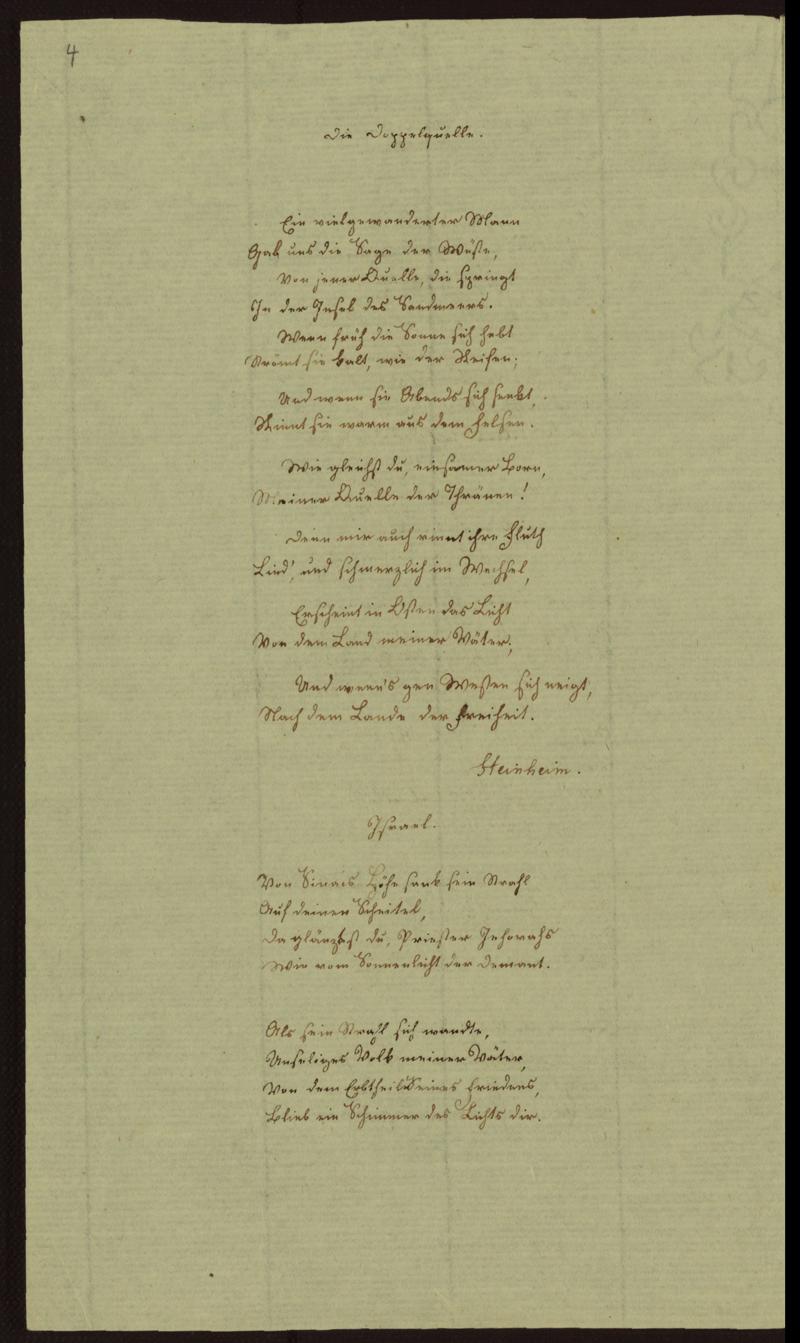 4
Die Doppelquelle.
Ein vielgewanderter Mann
Gab uns die Sage der Wüste,
Von jener Quelle, die springt
In der Insel des Sandmeers.
Wenn früh die Sonne sich hebt
Strömt sie kalt, wie der Reifen;
Und wenn sie Abends sich senkt,
Rinnt sie warm aus dem Felsen.
Wie gleichst du, einsamer Born,
Meiner Quelle der Thränen!
Denn mir auch rinnt ihre Fluth
Lind', und schmerzlich im Wechsel,
Erscheint in Osten das Licht
Von dem Land meiner Väter;
Und wenn's gen Westen sich neigt,
Nach dem Lande der Freiheit.
Steinheim.
Israel.
Von Sinais Höhe sank sein Strahl
Auf deinen Scheitel,
Da glänztest du, Priester Jehovahs
Wie vom Sonnenlicht der Demant.
Als sein Strahl sich wandte,
Unseliges Volk meiner Väter,
Von dem Erbtheil Seines Friedens,
Blieb ein Schimmer des Lichts dir.